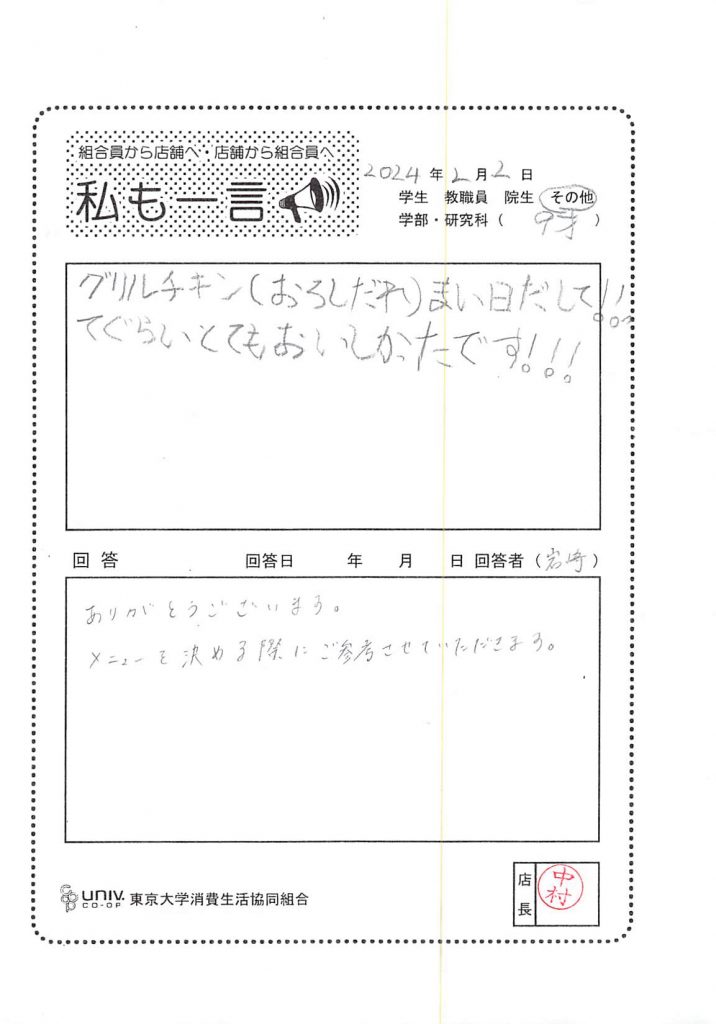 組合員から店舗へ・店舗から組合員へ
私も一言
2024年2月2日
学生 教職員 院生 その他
学部・研究科（ 9才 ）
グリルチキン(おろしだれ)まい日だして!!
てぐらいとてもおいしかったです!!!
回答 回答日 年 月 日 回答者（岩崎）
ありがとうございます。
メニューを決める際にご参考させていただきます。
UNIV. CO-OP 東京大学消費生活協同組合
店長 中村